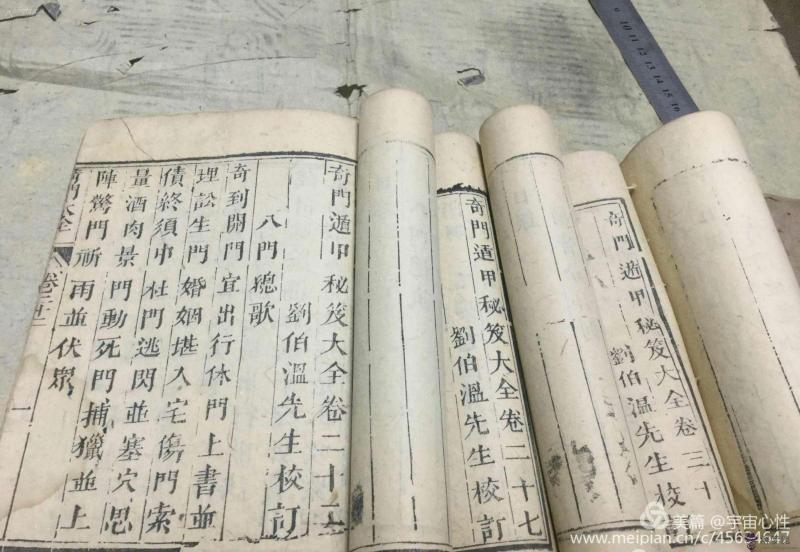 奇門遁甲秘笈大全卷二十二
劉伯溫先生校訂
八門總歌
奇到開門宜出行休門上書並
理訟生門婚姻堪入宅傷門索
債終須中杜門逃閃並塞穴思
量酒肉景門動死門捕獵並上
陣驚門祈雨並伏眾
奇門大全
一
奇門遁甲秘笈大全卷二十七
劉伯溫先生校訂
奇門遁甲秘笈大全卷三十
劉伯溫先生校
9 10 11 12 13 14 15 16
美篇 @宇宙心性
www.meipian.cn/c/45634647